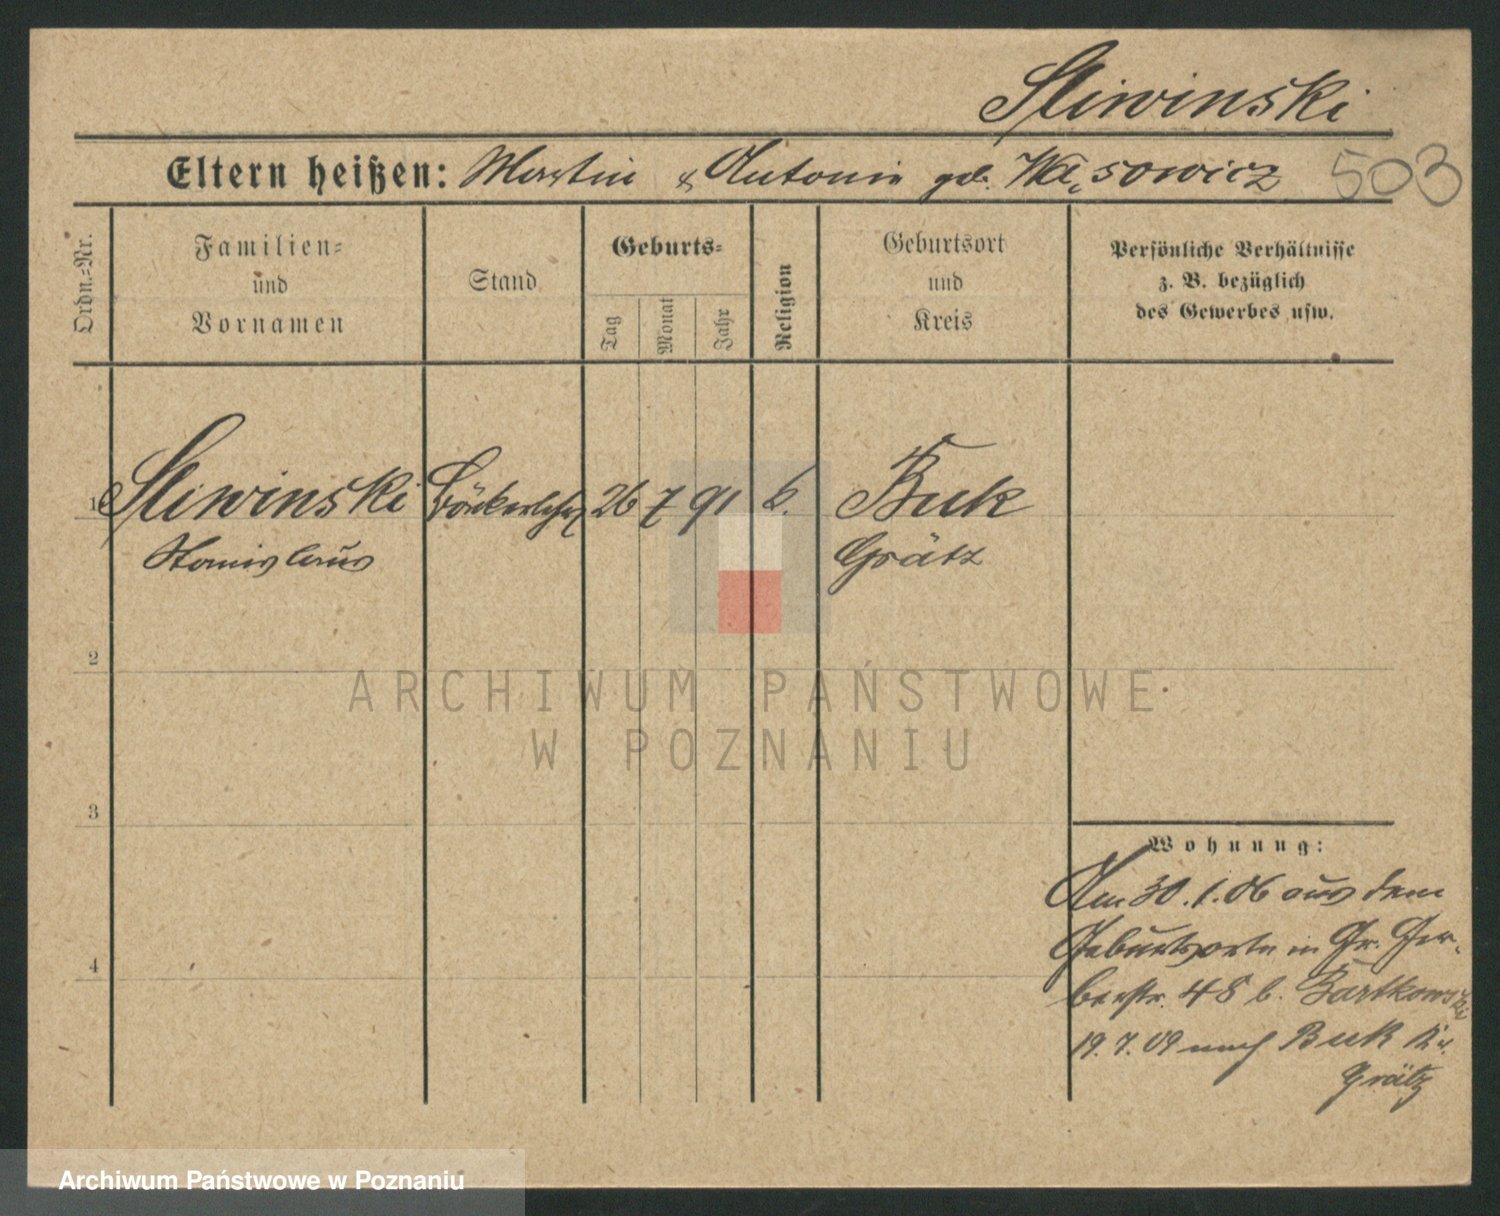 Sliwinski
Eltern heißen: Martin & Antonie geb. Wąsowicz 503
Ordn.-Nr.
Familien-
und
Vornamen
Stand
Geburts-
Tag
Monat
Jahr
Religion
Geburtsort
und
Kreis
Persönliche Verhältnisse
z. B. bezüglich
des Gewerbes usw.
1 Sliwinski Bäckerlehrl. 26 7 91 k. Buk
Stanislaus Grätz
2
3
4
Wohnung:
Am 30.1.06 aus dem
Geburtsorte in Gr. Ger-
berstr. 48 b. Bartkowski
19.7.09 nach Buk Kr.
Grätz
ARCHIWUM PAŃSTWOWE
W POZNANIU
Archiwum Państwowe w Poznaniu